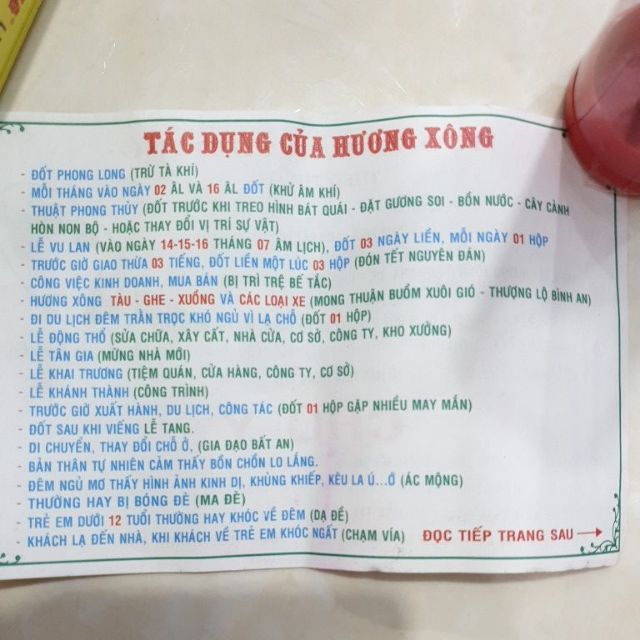 TÁC DỤNG CỦA HƯƠNG XÔNG
- ĐỐT PHONG LONG (TRỪ TÀ KHÍ)
- MỖI THÁNG VÀO NGÀY 02 ÂL VÀ 16 ÂL ĐỐT (KHỬ ÂM KHÍ)
- THUẬT PHONG THỦY (ĐỐT TRƯỚC KHI TREO HÌNH BÁT QUÁI - ĐẶT GƯƠNG SOI - BỒN NƯỚC - CÂY CẢNH
HÒN NON BỘ - HOẶC THAY ĐỔI VỊ TRÍ SỰ VẬT)
- LỄ VU LAN (VÀO NGÀY 14-15-16 THÁNG 07 ÂM LỊCH), ĐỐT 03 NGÀY LIỀN, MỖI NGÀY 01 HỘP
- TRƯỚC GIỜ GIAO THỪA 03 TIẾNG, ĐỐT LIỀN MỘT LÚC 03 HỘP (ĐÓN TẾT NGUYÊN ĐÁN)
- CÔNG VIỆC KINH DOANH, MUA BÁN (BỊ TRÌ TRỆ BẾ TẮC)
- HƯƠNG XÔNG TÀU - GHE - XUỒNG VÀ CÁC LOẠI XE (MONG THUẬN BUỒM XUÔI GIÓ - THƯỢNG LỘ BÌNH AN)
- ĐI DU LỊCH ĐÊM TRẰN TRỌC KHÓ NGỦ VÌ LẠ CHỖ (ĐỐT 01 HỘP)
- LỄ ĐỘNG THỔ (SỬA CHỮA, XÂY CẤT, NHÀ CỬA, CƠ SỞ, CÔNG TY, KHO XƯỞNG)
- LỄ TÂN GIA (MỪNG NHÀ MỚI)
- LỄ KHAI TRƯƠNG (TIỆM QUÁN, CỬA HÀNG, CÔNG TY, CƠ SỞ)
- LỄ KHÁNH THÀNH (CÔNG TRÌNH)
- TRƯỚC GIỜ XUẤT HÀNH, DU LỊCH, CÔNG TÁC (ĐỐT 01 HỘP GẶP NHIỀU MAY MẮN)
- ĐỐT SAU KHI VIẾNG LỄ TANG.
- DI CHUYỂN, THAY ĐỔI CHỖ Ở, (GIA ĐẠO BẤT AN)
- BẢN THÂN TỰ NHIÊN CẢM THẤY BỒN CHỒN LO LẮNG.
- ĐÊM NGỦ MƠ THẤY HÌNH ẢNH KINH DỊ, KHỦNG KHIẾP, KÊU LA Ú...Ớ (ÁC MỘNG)
- THƯỜNG HAY BỊ BÓNG ĐÈ (MA ĐÈ)
- TRẺ EM DƯỚI 12 TUỔI THƯỜNG HAY KHÓC VỀ ĐÊM (DẠ ĐỀ)
- KHÁCH LẠ ĐẾN NHÀ, KHI KHÁCH VỀ TRẺ EM KHÓC NGẤT (CHẠM VÍA) ĐỌC TIẾP TRANG SAU →